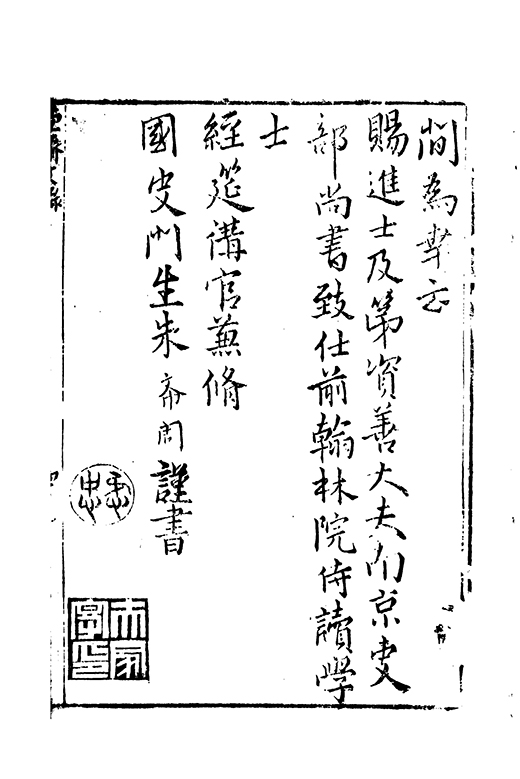 間為幸云
賜進士及第資善大夫南京吏
部尚書致仕前翰林院侍讀學
士
經筵講官兼脩
國史門生朱希周謹書
懋忠